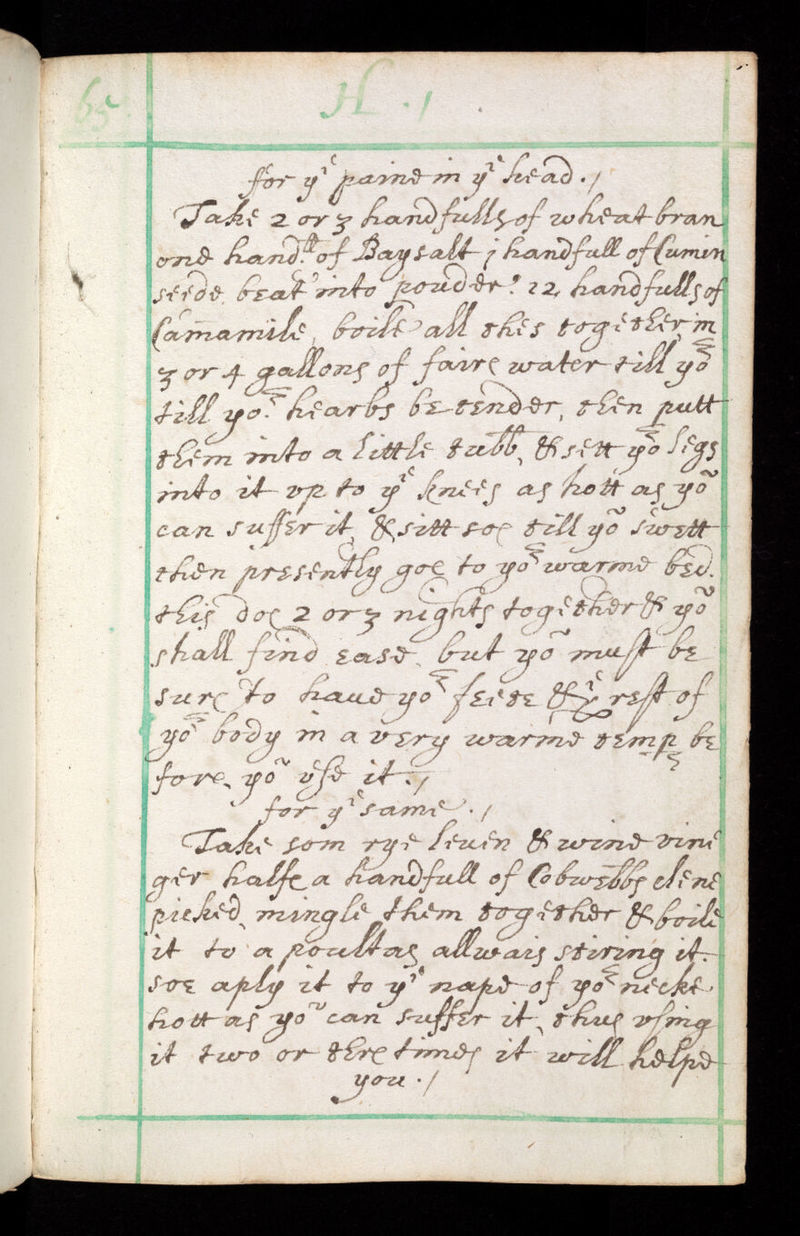 65
H ./
for yᵉ paine in yᵉ head ./
Take 2 or 3 handfulls of wheat bran
one handfll of Baysalt j handfull of Cumin
seede beat into pouder: 12 handfulls of
Camamile, boile all thes together in
3 or 4 gallons of faire water till yoʳ
till yoʳ hearbs be tender, then putt
them into a little tubb, & sett yoʳ legs
into it vp to yᵉ knees as hott as yoᵘ
can suffer it, & sitt soe till yoᵘ swett
then presently goe to yoʳ warme bed.
this doe 2 or 3 nights together & yoᵘ
shall find ease, but yoᵘ must be
sure to haue yoʳ feete & yᵉ rest of
yoʳ body in a very warme temp be
fore yoᵘ vse it ./
for yᵉ same ./
Take som rye leuen & wine vine
ger halfe a handfull of Cobwebbs clene
picked, mingle them together & boile
it to a poultas allwais stiring it.
soe aply it to yᵉ nape of yoʳ necke
hott as yoᵘ can suffer it, thus vsing
it two or there times it will helpe
you ./